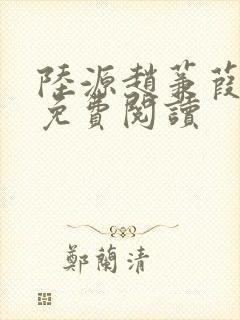 陸源趙蒹葭
免費閱讀
鄭蘭清